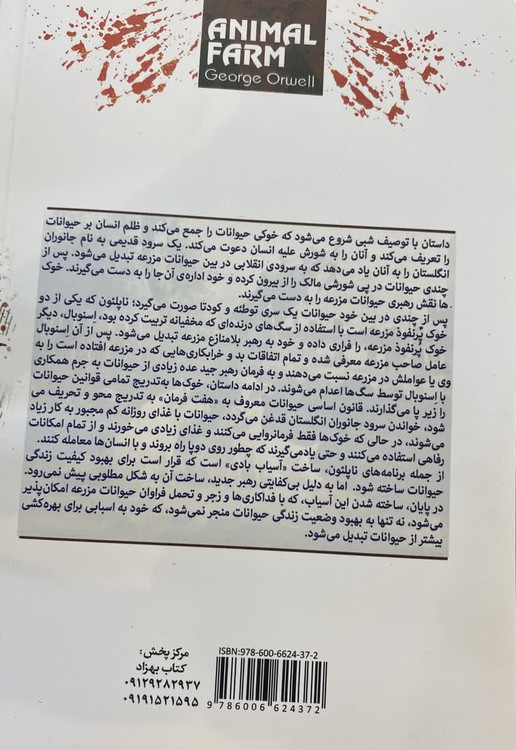 ANIMAL
FARM
George Orwell
داستان با توصیف شبی شروع می‌شود که خوکی حیوانات را جمع می‌کند و ظلم انسان بر حیوانات
را تعریف می‌کند و آنان را به شورش علیه انسان دعوت می‌کند. یک سرود قدیمی به نام جانوران
انگلستان را به آنان یاد می‌دهد که به سرودی انقلابی در بین حیوانات مزرعه تبدیل می‌شود. پس از
چندی حیوانات در پی شورشی مالک را از بیرون کرده و خود اداره‌ی آن‌جا را به دست می‌گیرند. خوک
ها نقش رهبری حیوانات مزرعه را به دست می‌گیرند.
پس از چندی در بین خود حیوانات یک سری توطئه و کودتا صورت می‌گیرد؛ ناپلئون که یکی از دو
خوک پُرنفوذ مزرعه است با استفاده از سگ‌های درنده‌ای که مخفیانه تربیت کرده بود، اسنوبال، دیگر
خوک پُرنفوذ مزرعه، را فراری داده و خود به رهبر بلامنازع مزرعه تبدیل می‌شود. پس از آن اسنوبال
عامل صاحب مزرعه معرفی شده و تمام اتفاقات بد و خرابکاری‌هایی که در مزرعه افتاده است را به
وی یا عواملش در مزرعه نسبت می‌دهند و به فرمان رهبر جید عده زیادی از حیوانات به جرم همکاری
با اسنوبال توسط سگ‌ها اعدام می‌شوند. در ادامه داستان، خوک‌ها به‌تدریج تمامی قوانین حیوانات
را زیر پا می‌گذارند. قانون اساسی حیوانات معروف به «هفت فرمان» به تدریج محو و تحریف می
شود، خواندن سرود جانوران انگلستان قدغن می‌گردد، حیوانات با غذای روزانه کم مجبور به کار زیاد
می‌شوند، در حالی که خوک‌ها فقط فرمانروایی می‌کنند و غذای زیادی می‌خورند و از تمام امکانات
رفاهی استفاده می‌کنند و حتی یادمی‌گیرند که چطور روی دوپا راه بروند و با انسان‌ها معامله کنند.
از جمله برنامه‌های ناپلئون، ساخت «آسیاب بادی» است که قرار است برای بهبود کیفیت زندگی
حیوانات ساخته شود. اما به دلیل بی‌کفایتی رهبر جدید، ساخت آن به شکل مطلوبی پیش نمی‌رود.
در پایان، ساخته شدن این آسیاب، که با فداکاری‌ها و زجر و تحمل فراوان حیوانات مزرعه امکان‌پذیر
می‌شود، نه تنها به بهبود وضعیت زندگی حیوانات منجر نمی‌شود، که خود به اسبابی برای بهره‌کشی
بیشتر از حیوانات تبدیل می‌شود.
مرکز پخش:
کتاب بهزاد
۰۹۱۲۹۲۸۲۹۳۷
۰۹۱۹۱۵۲۱۵۹۵
ISBN:978-600-6624-37-2
9 786006 624372